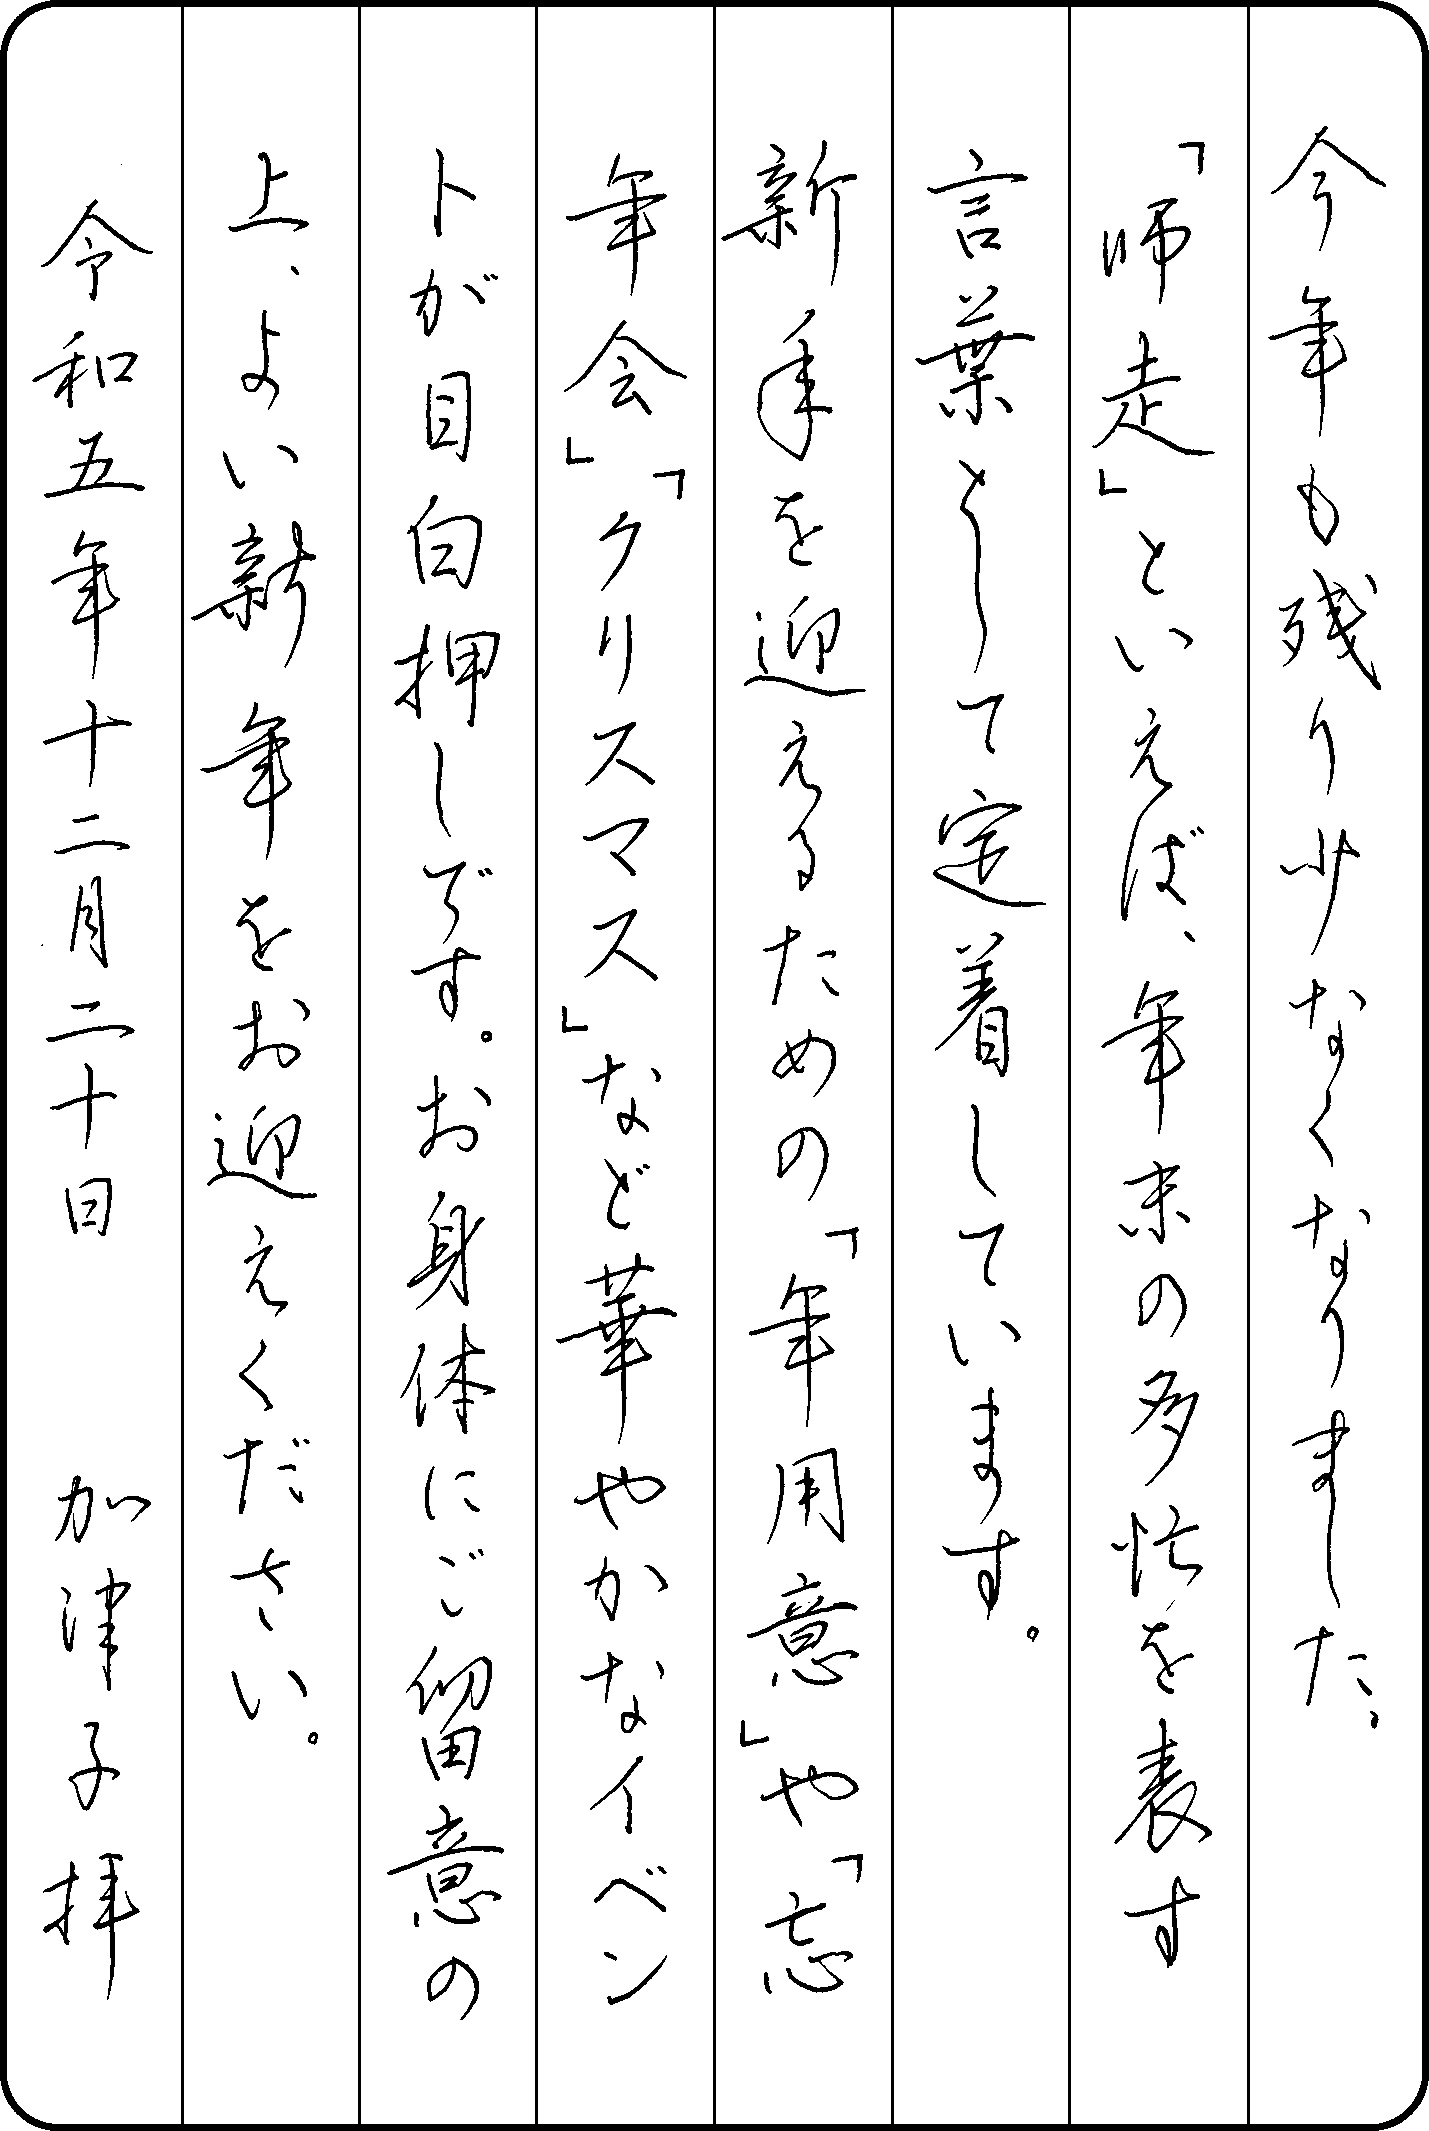 今年も残り少なくなりました。
「師走」といえば、年末の多忙を表す
言葉として定着しています。
新年を迎えるための「年用意」や「忘
年会」「クリスマス」など華やかなイベン
トが目白押しです。お身体にご留意の
上、よい新年をお迎えください。
令和五年十二月二十日 加津子拝